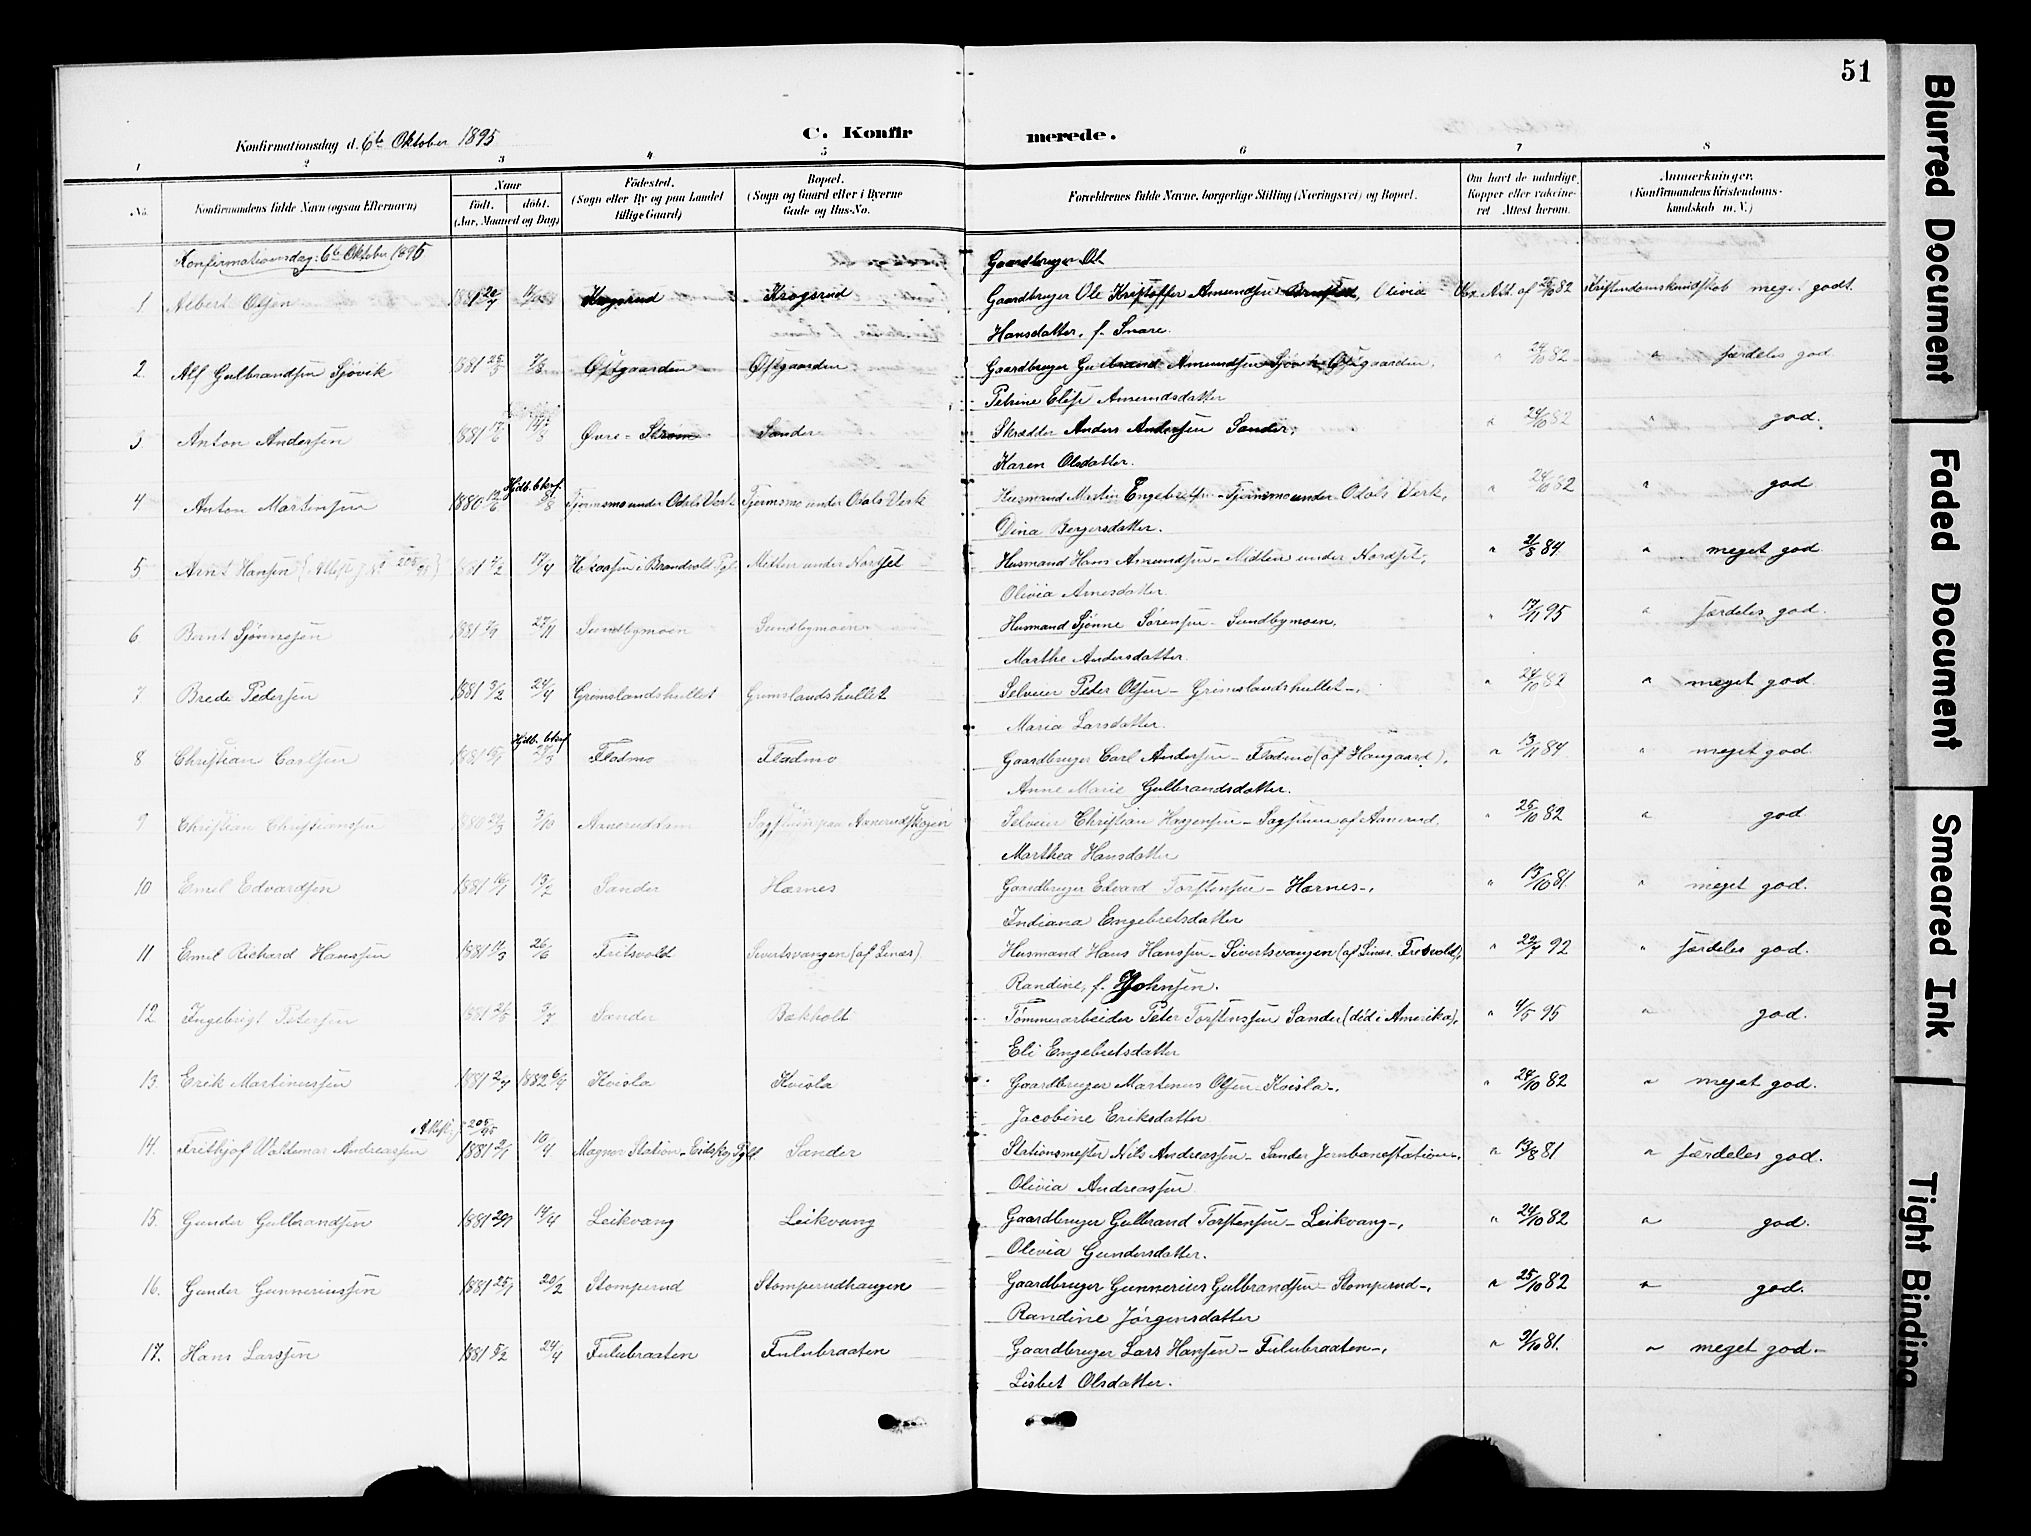 51
Konfirmationsdag d. 6te Oktober 1895
C. Konfirmerede.
1 2 3 4 5 6 7 8
No. Konfirmandens fulde Navn (ogsaa Efternavn) Naar født. døbt. (Aar, Maaned og Dag) Fødested. (Sogn eller By og paa Landet tillige Gaard) Bopæl. (Sogn og Gaard eller i Byerne Gade og Hus-No. Forældrenes fulde Navne, borgerlige Stilling (Næringsvei) og Bopæl. Om havt de naturlige Kopper eller vaccineret. Attest herom. Anmærkninger. (Konfirmandens Kristendomskundskab m. V.)
Konfirmationsdag: 6te Oktober 1895 Gaardbruger Ol
1 Albert Olsen 1881 20/7 Krogsrud Krogsrud Gaardbruger Ole Kristoffer Amundsen Olivia Vac. Att. af 82 Kristendomskundskab meget godt.
Hansdatter, f. Snare.
2. Alf Gulbrandsen Sjøvik 1881 7/8 Østgaarden Østgaarden Gaardbruger Gulbrand Amundsen Østgaarden, " 24/10 82 " særdeles god
Petrine Elise Amundsdatter
3. Anton Andersen 1881 17/6 14/8 Øvre-Strøm Sander Skrædder Anders Andersen Sander, " 24/10 82 " god.
Karen Olsdatter.
4 Anton Martinsen 1880 Hjdb. bkrf. Tjernsmo under Odals Verk Tjernsmo under Odals Verk Husmand Martin Engebretsen - Tjernsmo under Odals Verk, " 24/10 82 " god
Dina Bergersdatter.
5 Arnt Hansen (Attest J. No 205/95) 1881 7/2 17/4 i Brandvold Pgl. Mitten under Nordset Husmand Hans Amundsen - Midten under Nordset, " 21/8 84 " meget god
Olivia Arnesdatter.
6 Bernt Sjønnesen 1881 27/11 Sundbymoen Sundbymoen Husmand Sjønne Sørensen - Sundbymoen, " 17/11 95 " særdeles god.
Marthe Andersdatter.
7 Brede Pedersen 1881 3/2 24/4 Grimslandshullet Grimslandshullet Selveier Peter Olsen - Grimslandshullet -, " 24/10 82 " meget god
Maria Larsdatter.
8 Christian Carlsen 1881 Hjdb. bkrf. 27/3 Fladmo Fladmo Gaardbruger Carl Andersen - Fladmo (af Haugaard), " 13/11 84 " meget god.
Anne Marie Gulbrandsdatter.
9 Christian Christiansen 1880 3/10 Aaneruddam Sagstuen paa Aanerudskogen Selveier Christian Haagensen - Sagstuen af Aanerud, " 26/10 82 " god
Marthea Hansdatter
10 Emil Edvardsen 1881 16/1 13/2 Sander Harnes Gaardbruger Edvard Torstensen - Harnes -, " 13/10 81. " meget god.
Indiana Engebretsdatter
11 Emil Richard Hanssen 1881 11/3 26/6 Fritsvold Sivertsvangen (af Linæs) Husmand Hans Hanssen - Sivertsvangen (af Linæs. Fritsvold), " 92 " særdeles god.
Randine, f. Johnsen.
12 Ingebrigt Petersen 1881 Sander Bækholt Tømmerarbeider Peter Torstensen Sander (død i Amerika), " 4/5 95 " god.
Eli Engebretsdatter
13. Erik Martinussen 1881 1882 Kvisla Kvisla Gaardbruger Martinus Olsen - Kvisla -, " 24/10 82 " meget god.
Jacobine Eriksdatter
Attest J. 205/95
14. Frithjof Valdemar Andreassen 1881 2/1 10/4 Magnor Station - Eidskog Pgld. Sander Stationsmester Nils Andreassen - Sander Jernbanestation -, " 13/8 81 " særdeles god.
Olivia Andreassen
15. Gunder Gulbrandsen 1881 14/4 Leikvang Leikvang Gaardbruger Gulbrand Torstensen - Leikvang -, " 24/10 82 " god.
Olivia Gundersdatter.
16. Gunder Gunneriussen 1881 25/1 20/2 Stomperud Stomperudhaugen Gaardbruger Gunnerius Gulbrandsen - Stomperud -, " 25/10 82 " god.
Randine Jørgensdatter
17. Hans Larssen 1881 5/2 24/4 Fulubraaten Fulubraaten Gaardbruger Lars Hansen - Fulubraaten -, " 9/10 81. " meget god -
Lisbet Olsdatter.
Blurred Document
Faded Document
Smeared Ink
Tight Binding